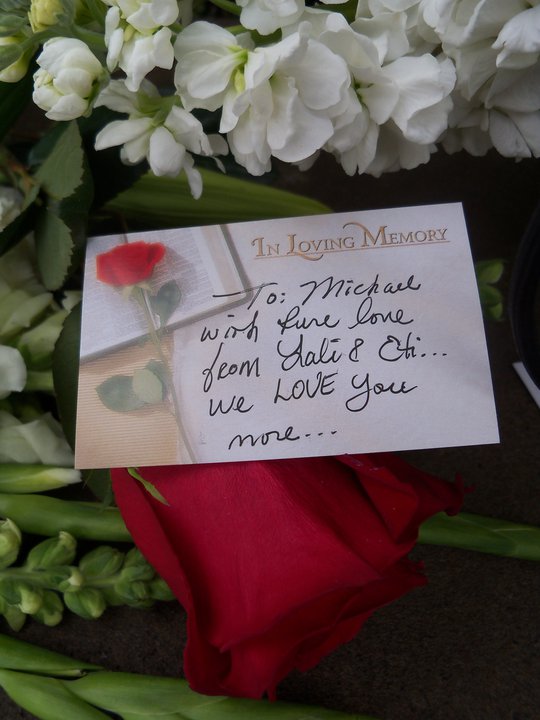 IN LOVING MEMORY
—To: Michael
with pure love
from Lali & Eti...
we LOVE You
more...